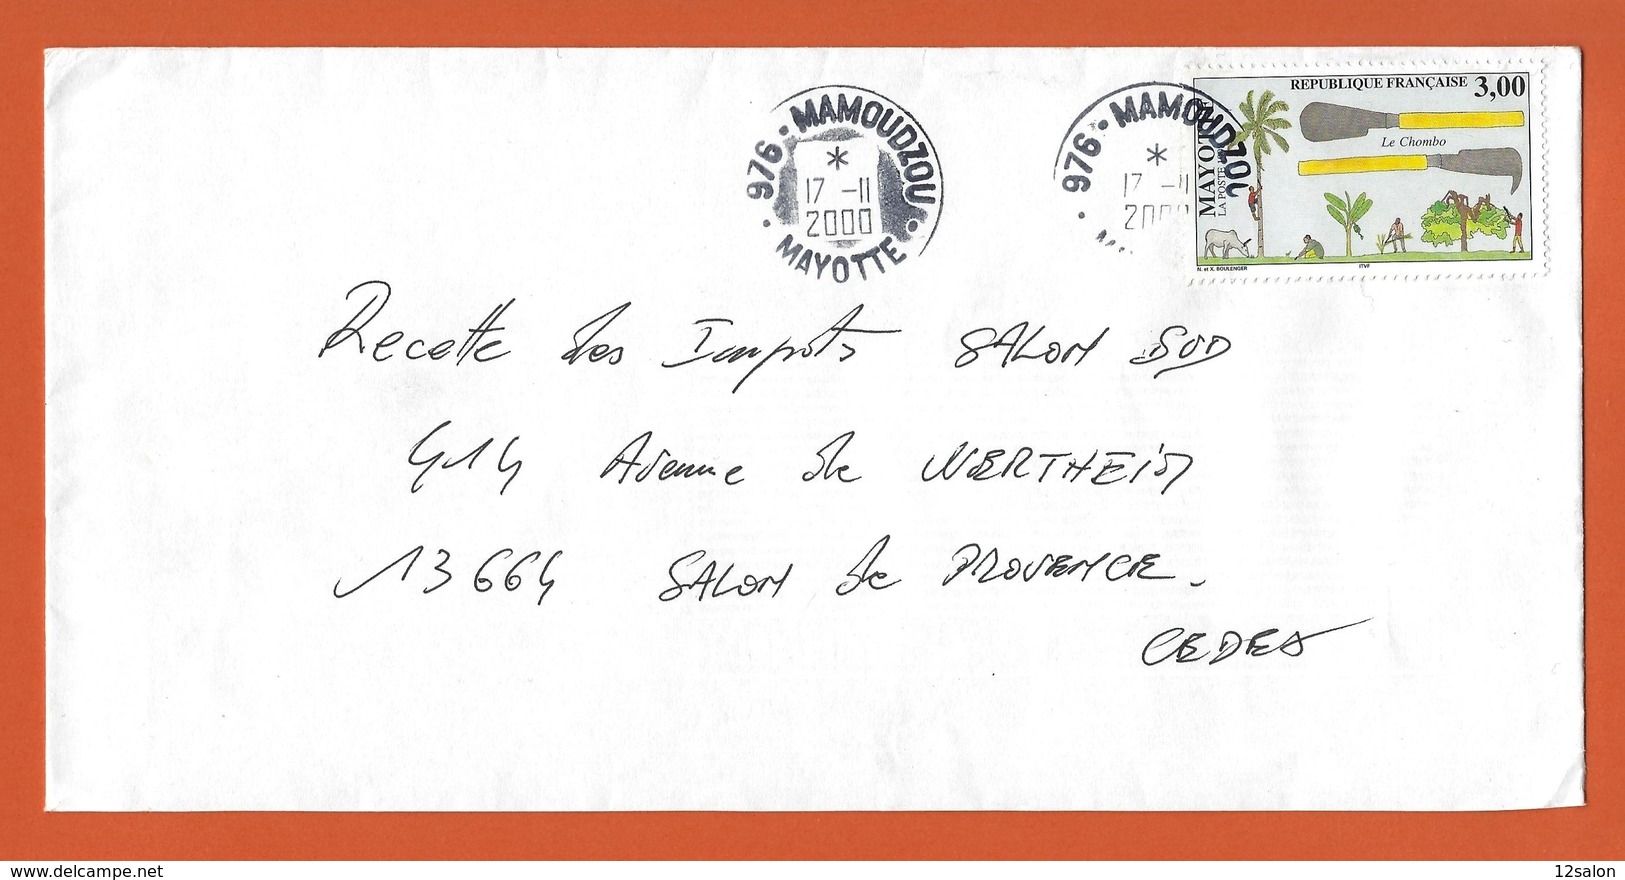 976 • MAMOUDZOU •
*
17 -11
2000
MAYOTTE
976 • MAMOUDZOU
*
17 -11
2000
REPUBLIQUE FRANÇAISE 3,00
Le Chombo
MAYOTTE
LA POSTE
N. et X. BOULENGER
ITVF
Recette des Impots SALON SUD
414 Avenue de WERTHEIM
13664 SALON de PROVENCE.
CEDEX
12salon